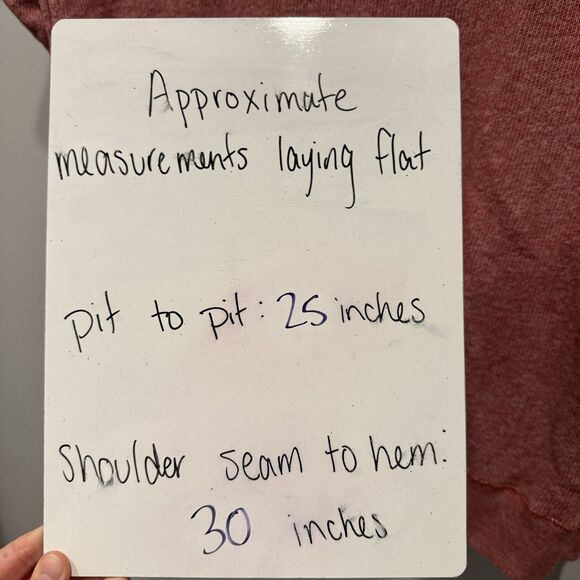 Approximate
measurements laying flat
pit to pit: 25 inches
Shoulder seam to hem:
30 inches